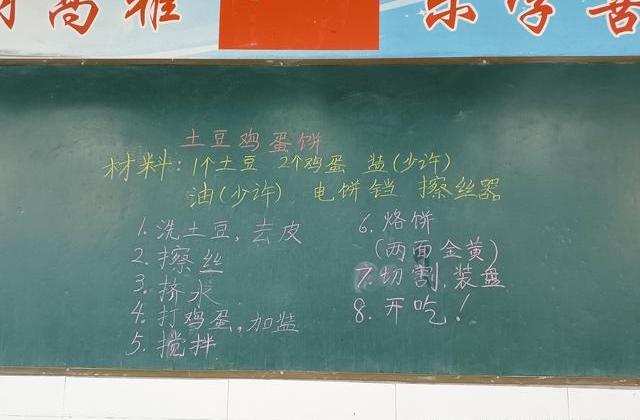 高雅
乐学善
土豆鸡蛋饼
材料:1个土豆 2个鸡蛋 盐(少许)
油(少许) 电饼铛 擦丝器
1. 洗土豆,去皮
2. 擦丝
3. 挤水
4. 打鸡蛋,加盐
5. 搅拌
6. 烙饼
(两面金黄)
7. 切割,装盘
8. 开吃!